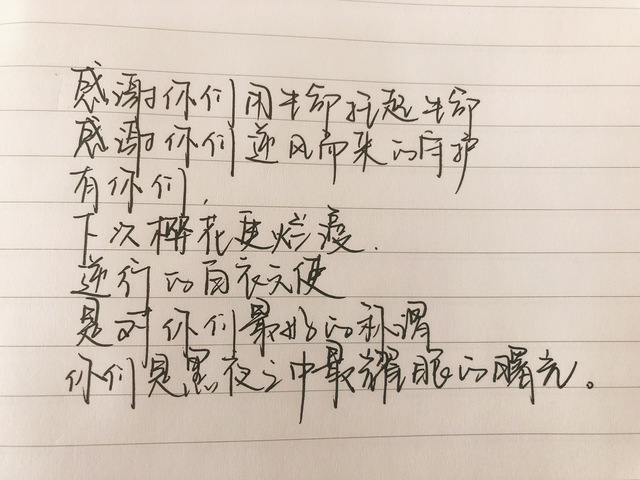 感谢你们用生命托起生命
感谢你们逆风而来的守护
有你们，
下次樱花更烂漫.
逆行的白衣天使
是对你们最好的称谓
你们是黑夜之中最耀眼的曙光。